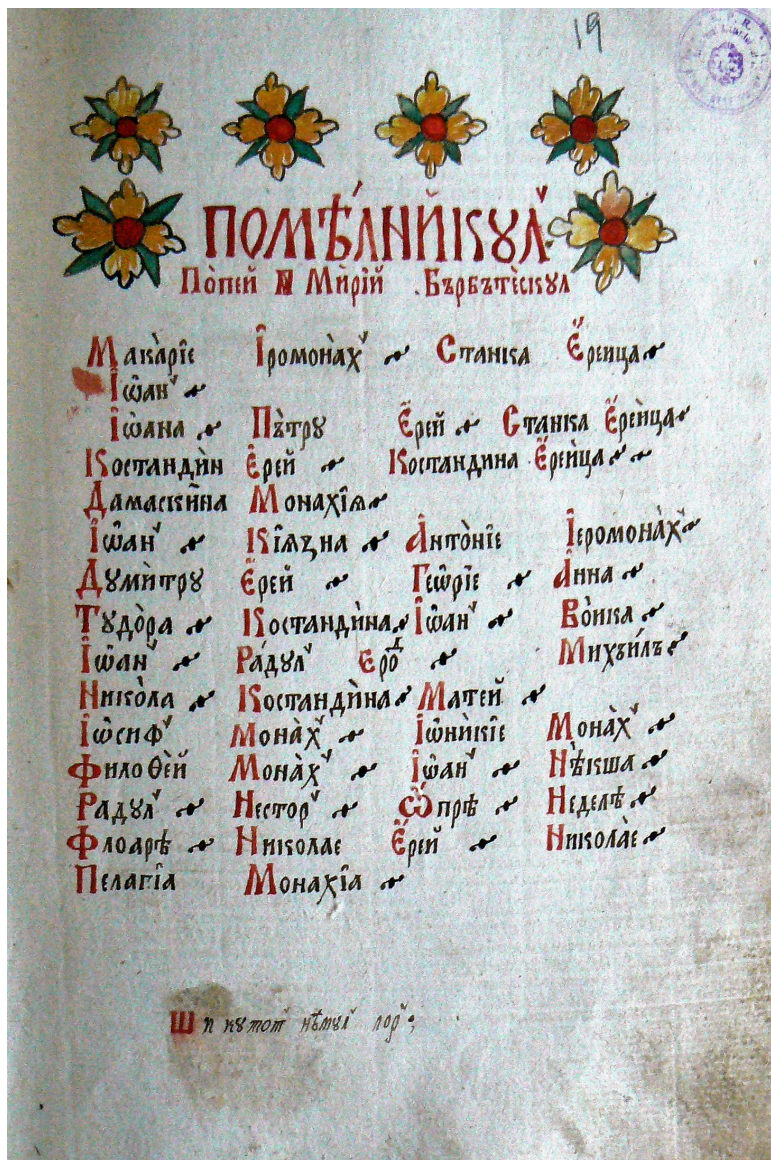 19
ПОМѢ́ЛНЙКꙋЛ̆
По̀пей Мѝрїй Бърбътѐскꙋл
Мака̀рїе І̑ромона̀х̾ Станка Є҆реица
І̑ѡан̾
І̑ѡана Пъ̀трꙋ Є҆рей Станка Є҆рѐица
Костандѝн Є҆рей Костандина Є҆рѐица
Дамаски̑на Монахїѧ
І̑ѡ̑ан̾ Кїѧжна А҆нто̀нїе І̑еромона̀х̾
Дꙋмѝтрꙋ Є҆рей Геѡ̑рїе А҆нна
Тꙋдо̀ра Костандѝна І̑ѡ̑ан̾ Во̀ика
І̑ѡ̑ан̾ Ра́дꙋл̾ Єрод Михъи́лъ
Нико̀ла Костандѝна Матей
І̑ѡ̑сиф̾ Мона̀х̾ І̑ѡ̑нѝкїе Мона̀х̾
Филоѳѐй Мона̀х̾ І̑ѡ̑ан̾ Нѣ̀кша
Радꙋл̾ Нестор̾ Ѡ҆прѣ Неделѣ
Флоарѣ Николае Є҆рей Никола̀е
Пелагїа Монахїа
Ши кꙋтот̾ нѣмꙋл̾ лор̾